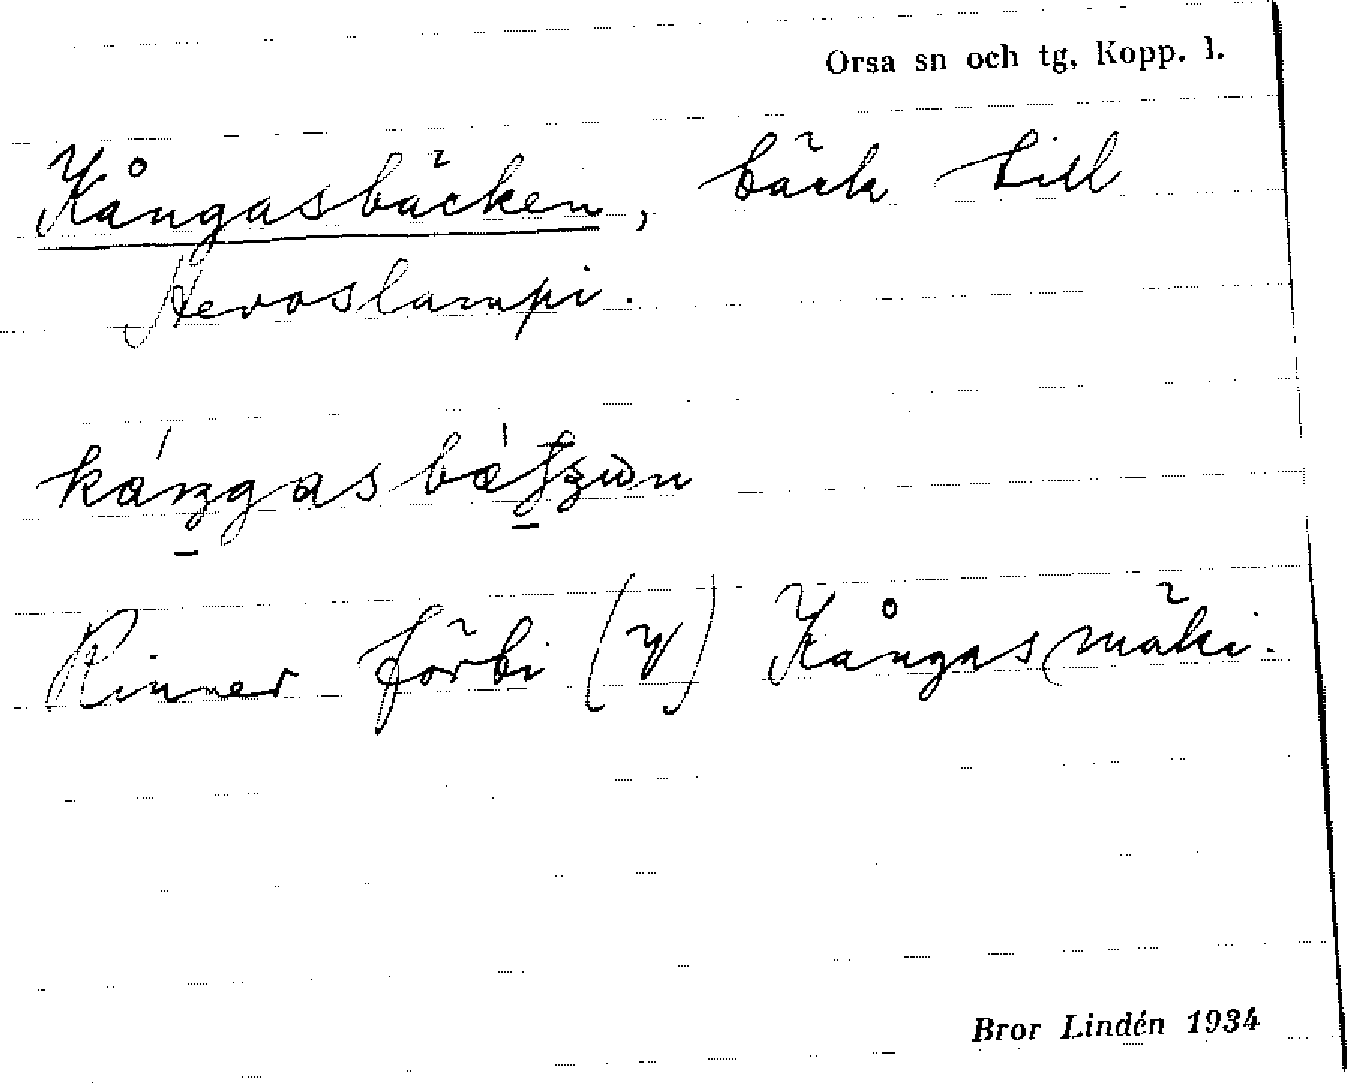 Orsa sn och tg, Kopp. l.
Kångasbäcken, bäck till
Hevoslampi.
Rinner förbi (y) Kångasmäki.
Bror Lindén 1934